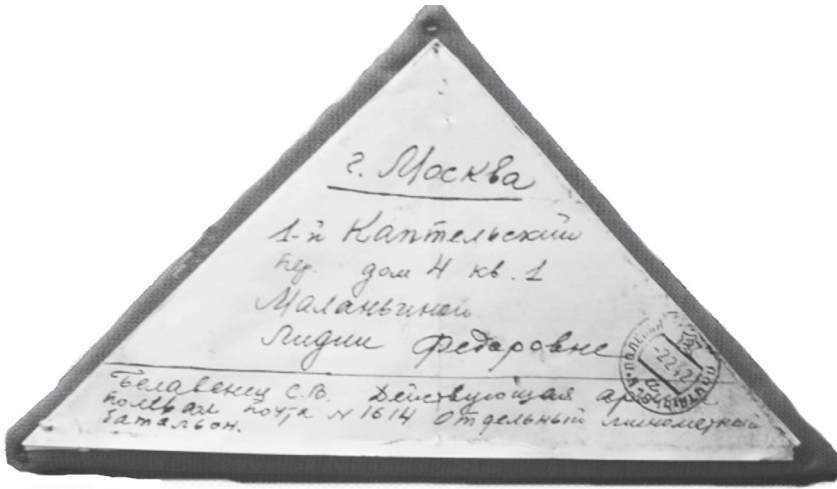 г. Москва
1-й Каптельский
пер. дом 4 кв. 1
Маланьиной
Лидии Федоровне
Белавенец С.В. Действующая армия
полевая почта № 1614 Отдельный минометный
батальон.